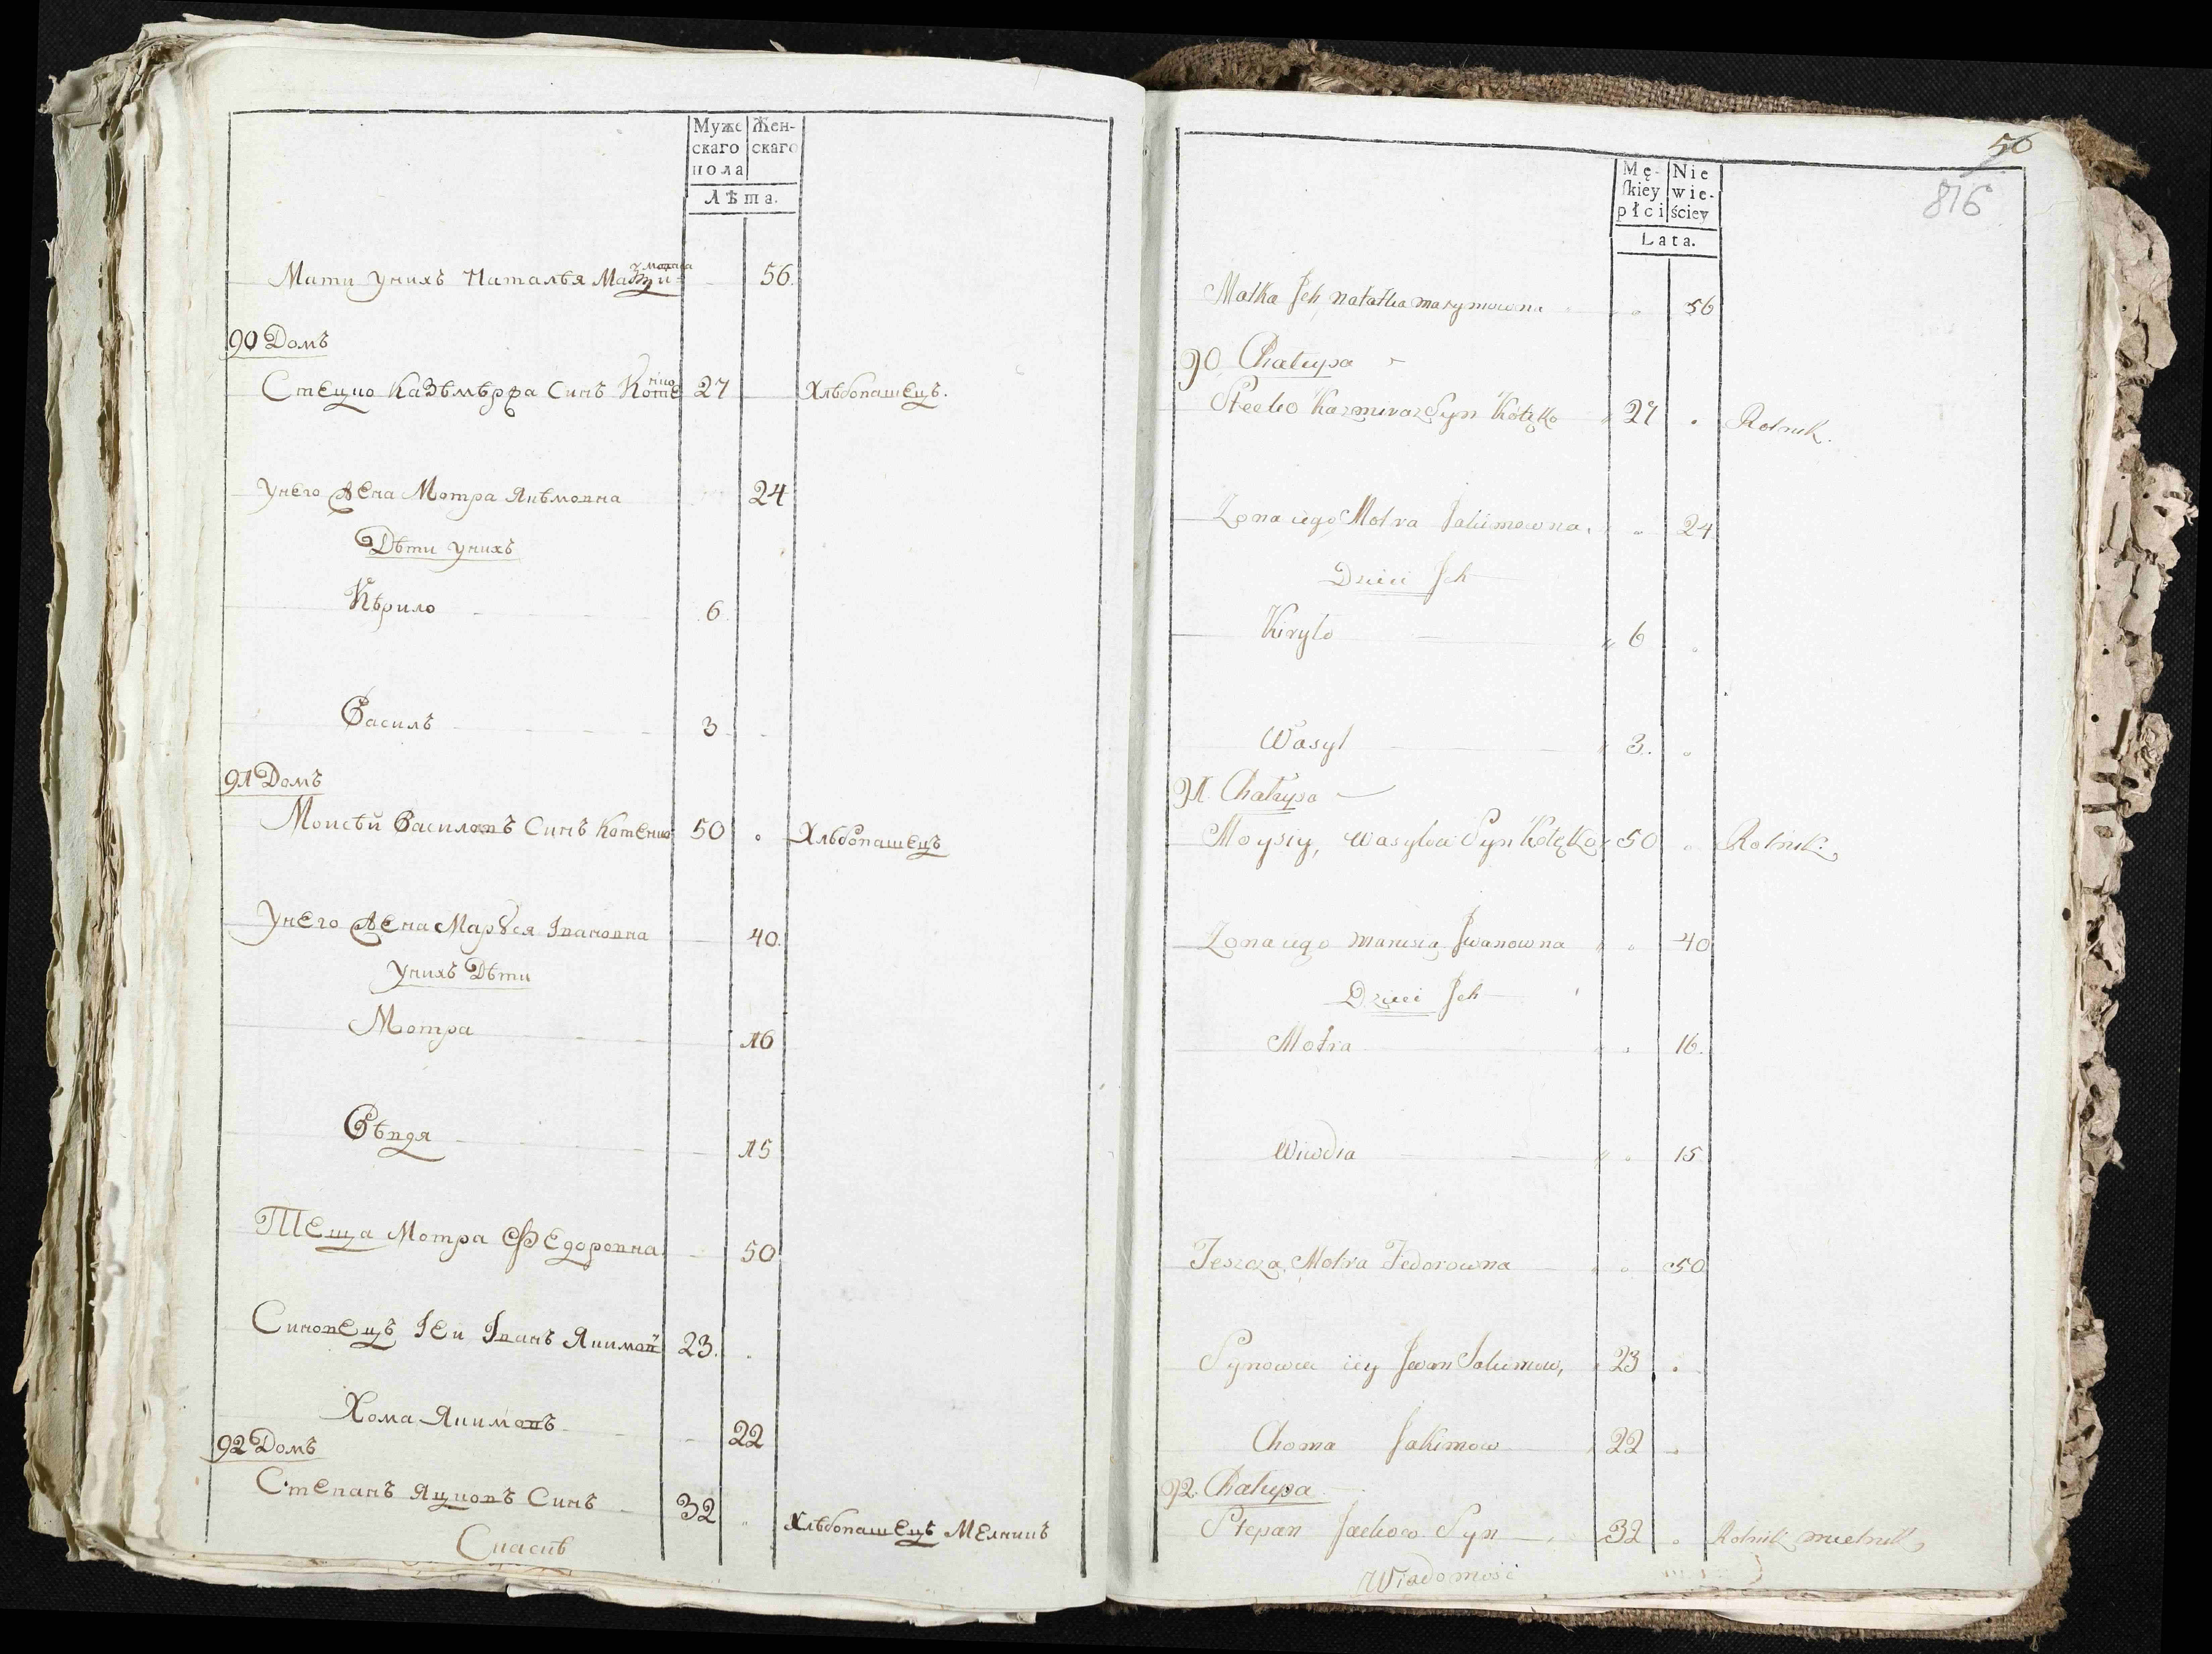 Муже Жен-
скаго скаго
пола
Лѣта.
Мати унихъ Наталъя 56.
90 Домъ
Стецко Казѣмѣрра Синъ Коте 27 Хлѣбопашецъ.
унего Жена Мотра Якѣмовна 24
Дѣти унихъ
Кѣрило 6
Василъ 3
91 Домъ
Моисѣй Василовъ Синъ Котенко 50 Хлѣбопашецъ
унего Жена Маруся Івановна 40.
унихъ Дѣти
Мотра 16
Вѣвдя 15
Теща Мотра Федоровна. 50
Синовецъ Іеи Іванъ Якимов 23.
Хома Якимовъ 22
92 Домъ
Степанъ Яцковъ Синъ 32 Хлѣбопашецъ Мелникъ
50
816
Mę- Nie
skiey wie-
płci ściey
Lata.
Matka Jch, natałka maxymowna 56
90 Chałupa
Stecko Kazmiraz Syn Kotęko 27 Rolnik.
Zona iego Motra Jakimowna, 24
Dzieci Jch
Kiryło 6
Wasyl 3.
91. Chałupa
Moysiy, Wasylow Syn Kotęko 50 Rolnik.
Zona iego marusia Jwanowna 40
Dzieci Jch
Motra 16.
Wiwdia 15
Teszcza, Motra Fedorowna 50
Synowiec iey Jwan Jakimow, 23
Choma Jakimow 22
92. Chałupa
Stepan Jackow Syn 32 Rolnik mielnik
Wiadomość